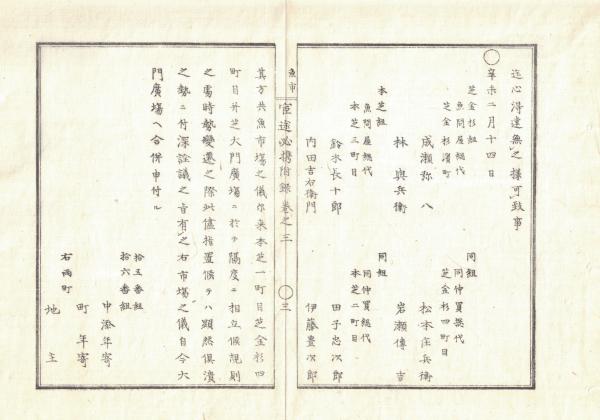 迄心得違無之樣可致事
辛未二月十四日
芝金杉組
魚問屋總代
芝金杉濱町
成瀬弥八
同組
同仲買總代
芝金杉四町目
松本庄兵衛
林與兵衛
岩瀬傳吉
本芝組
魚問屋總代
本芝三町目
鈴木長十郎
同組
同仲買總代
本芝二町目
田子忠次郎
内田吉右衛門
伊藤豊次郎
魚市
宦途必携附録巻之三
三
其方共魚市塲之儀你来本芝一町目芝金杉四
町目并芝大門廣塲ニ於テ隔度ニ相立候規則
之處時勢變遷之際此儘指置候テハ顕然倶潰
之勢ニ付深詮議之旨有之右市塲之儀自今大
門廣塲ヘ合併申付ル
拾五番組
拾六番組
申添年寄
町年寄
右両町
地主